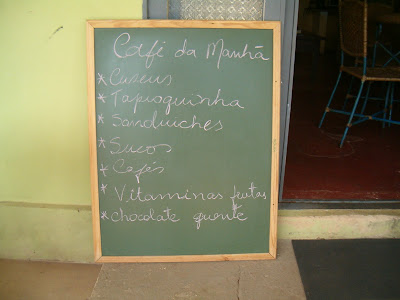 Café da Manhã
* Cuscus
* Tapioquinha
* Sanduiches
* Sucos
* Cafés
* Vitaminas frutas
* chocolate quente